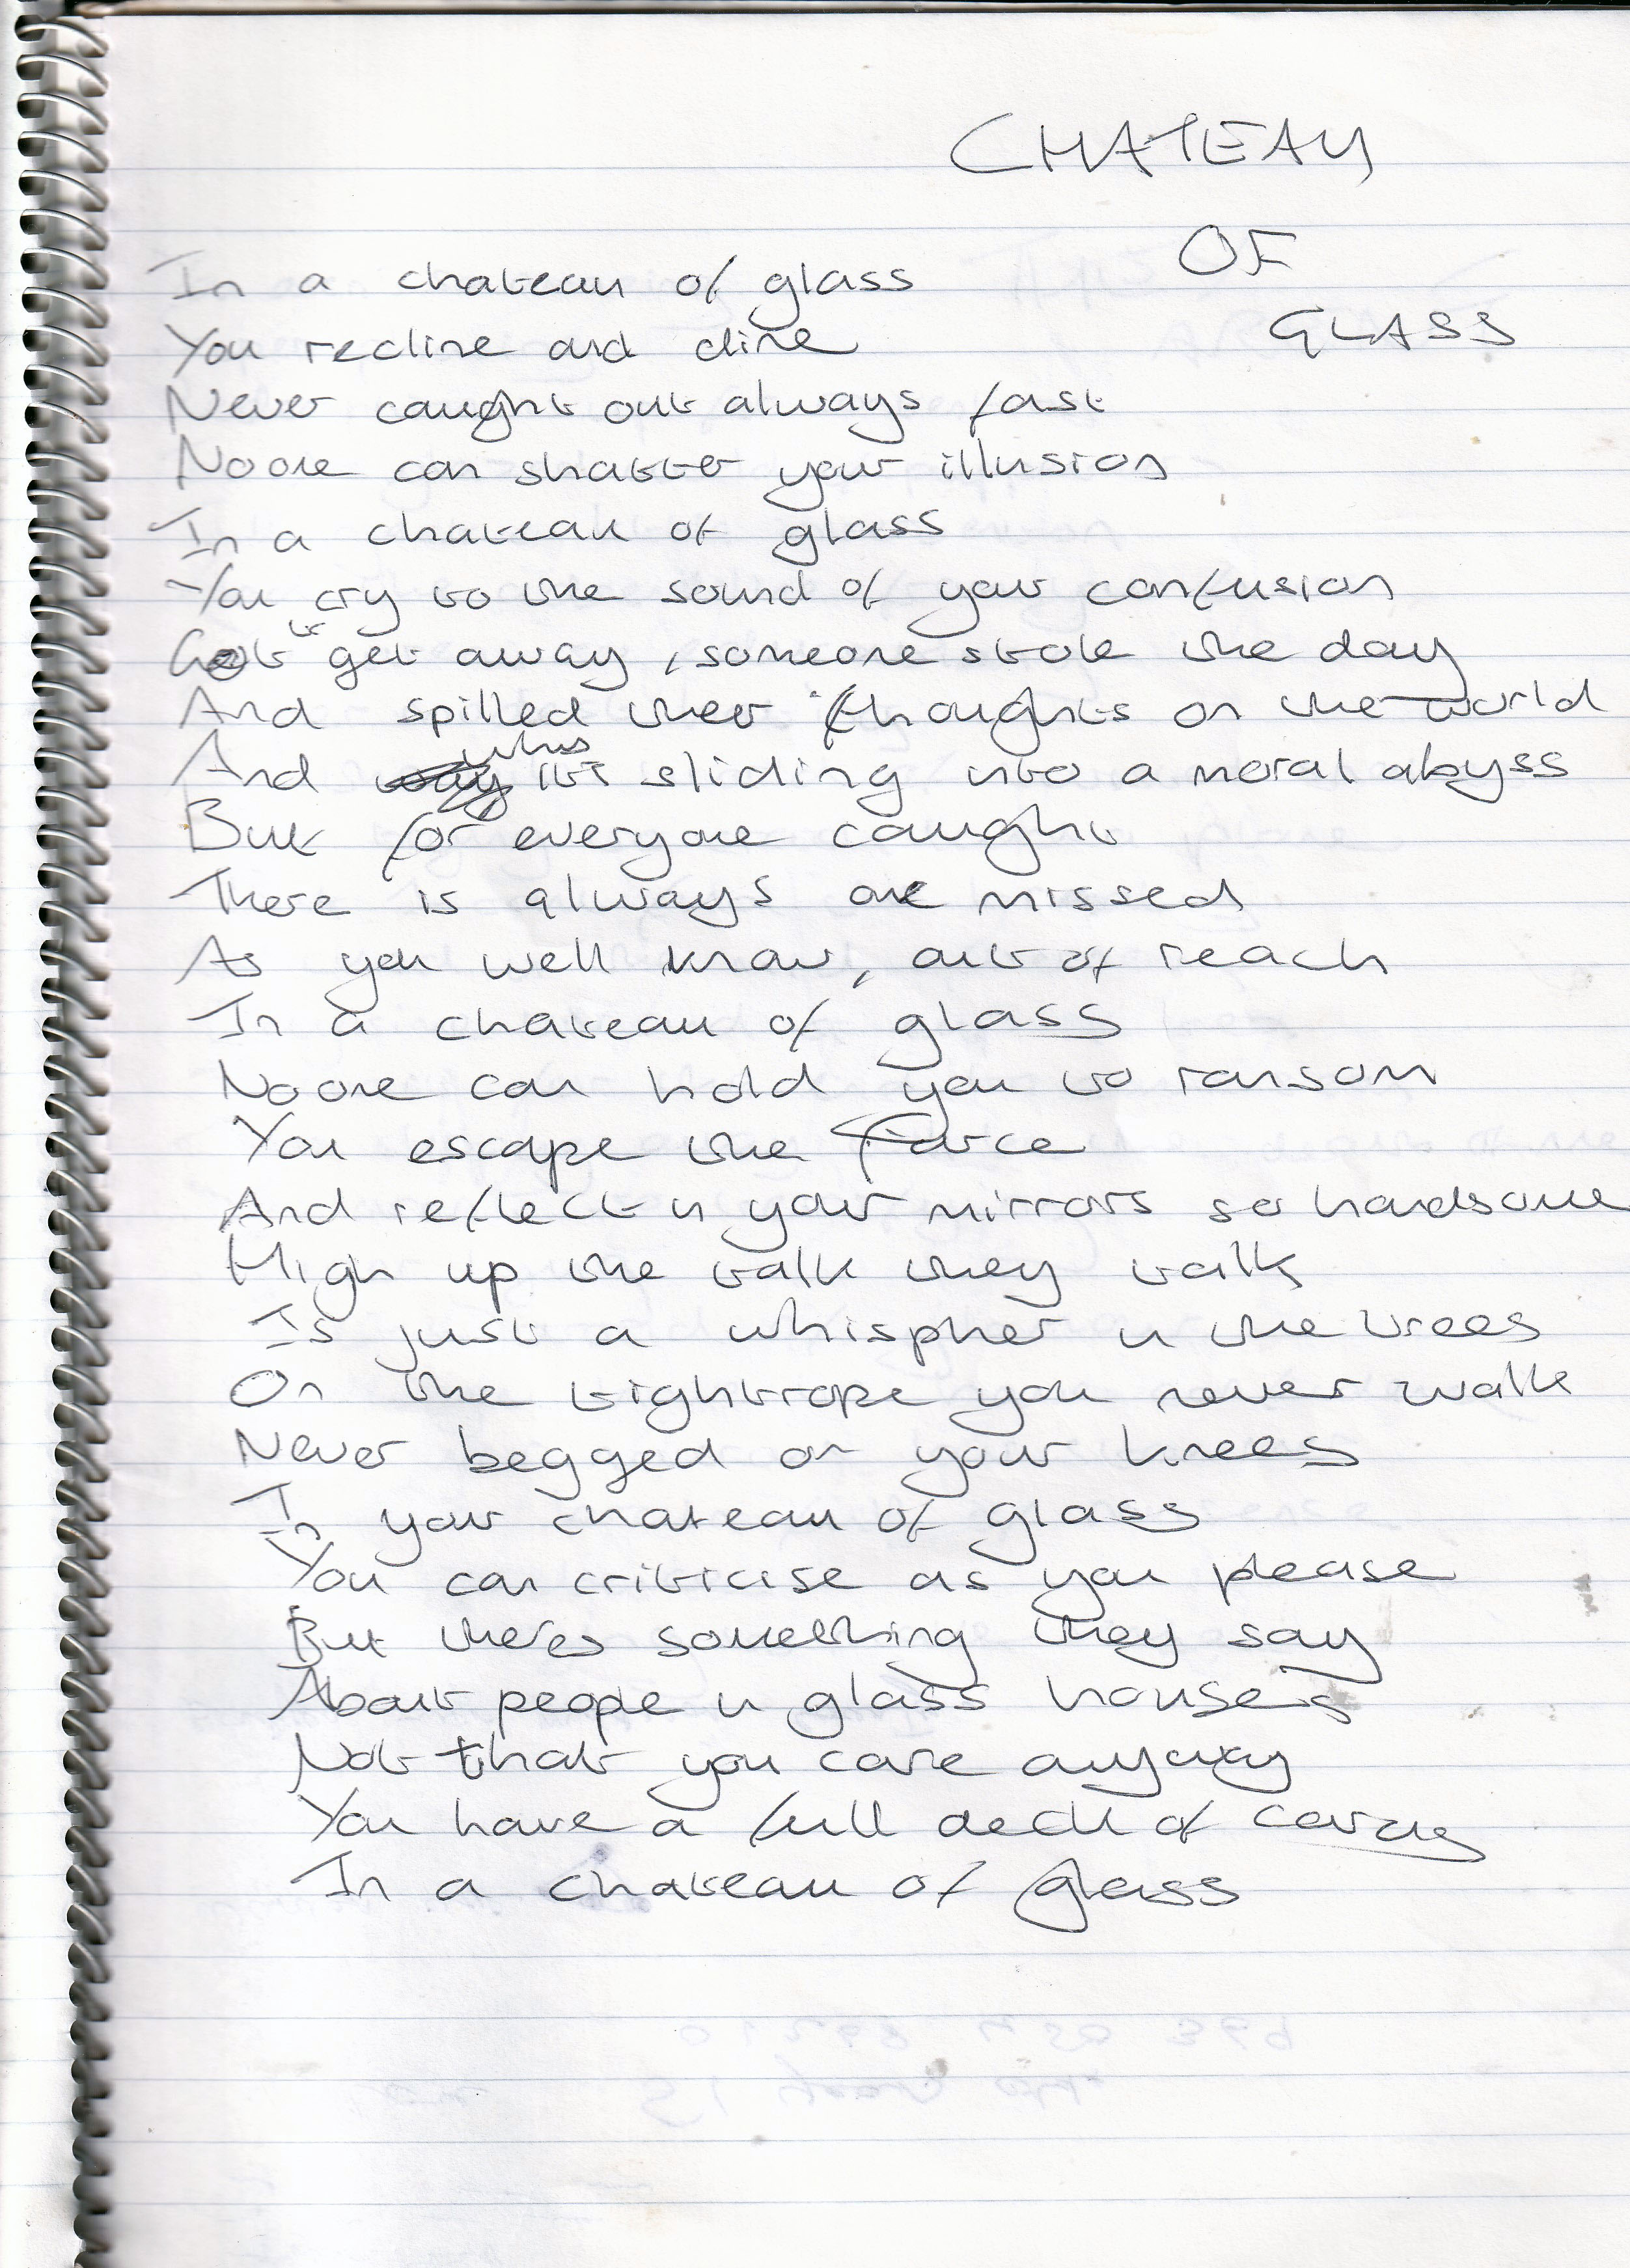 CHATEAU
OF
GLASS
In a chateau of glass
You recline and dine
Never caught out always fast
Noone can shatter your illusion
In a chateau of glass
You cry to the sound of your confusion
Got to get away, someone stole the day
And spilled their thoughts on the world
And this its sliding into a moral abyss
But for everyone caught
There is always one missed
As you well know, out of reach
In a chateau of glass
Noone can hold you to ransom
You escape the farce
And reflect in your mirrors so handsome
High up the talk they talk
Is just a whispher in the trees
On the tightrope you never walk
Never begged on your knees
In your chateau of glass
You can criticise as you please
But theres something they say
About people in glass houses
Not that you care anyway
You have a full deck of cards
In a chateau of glass